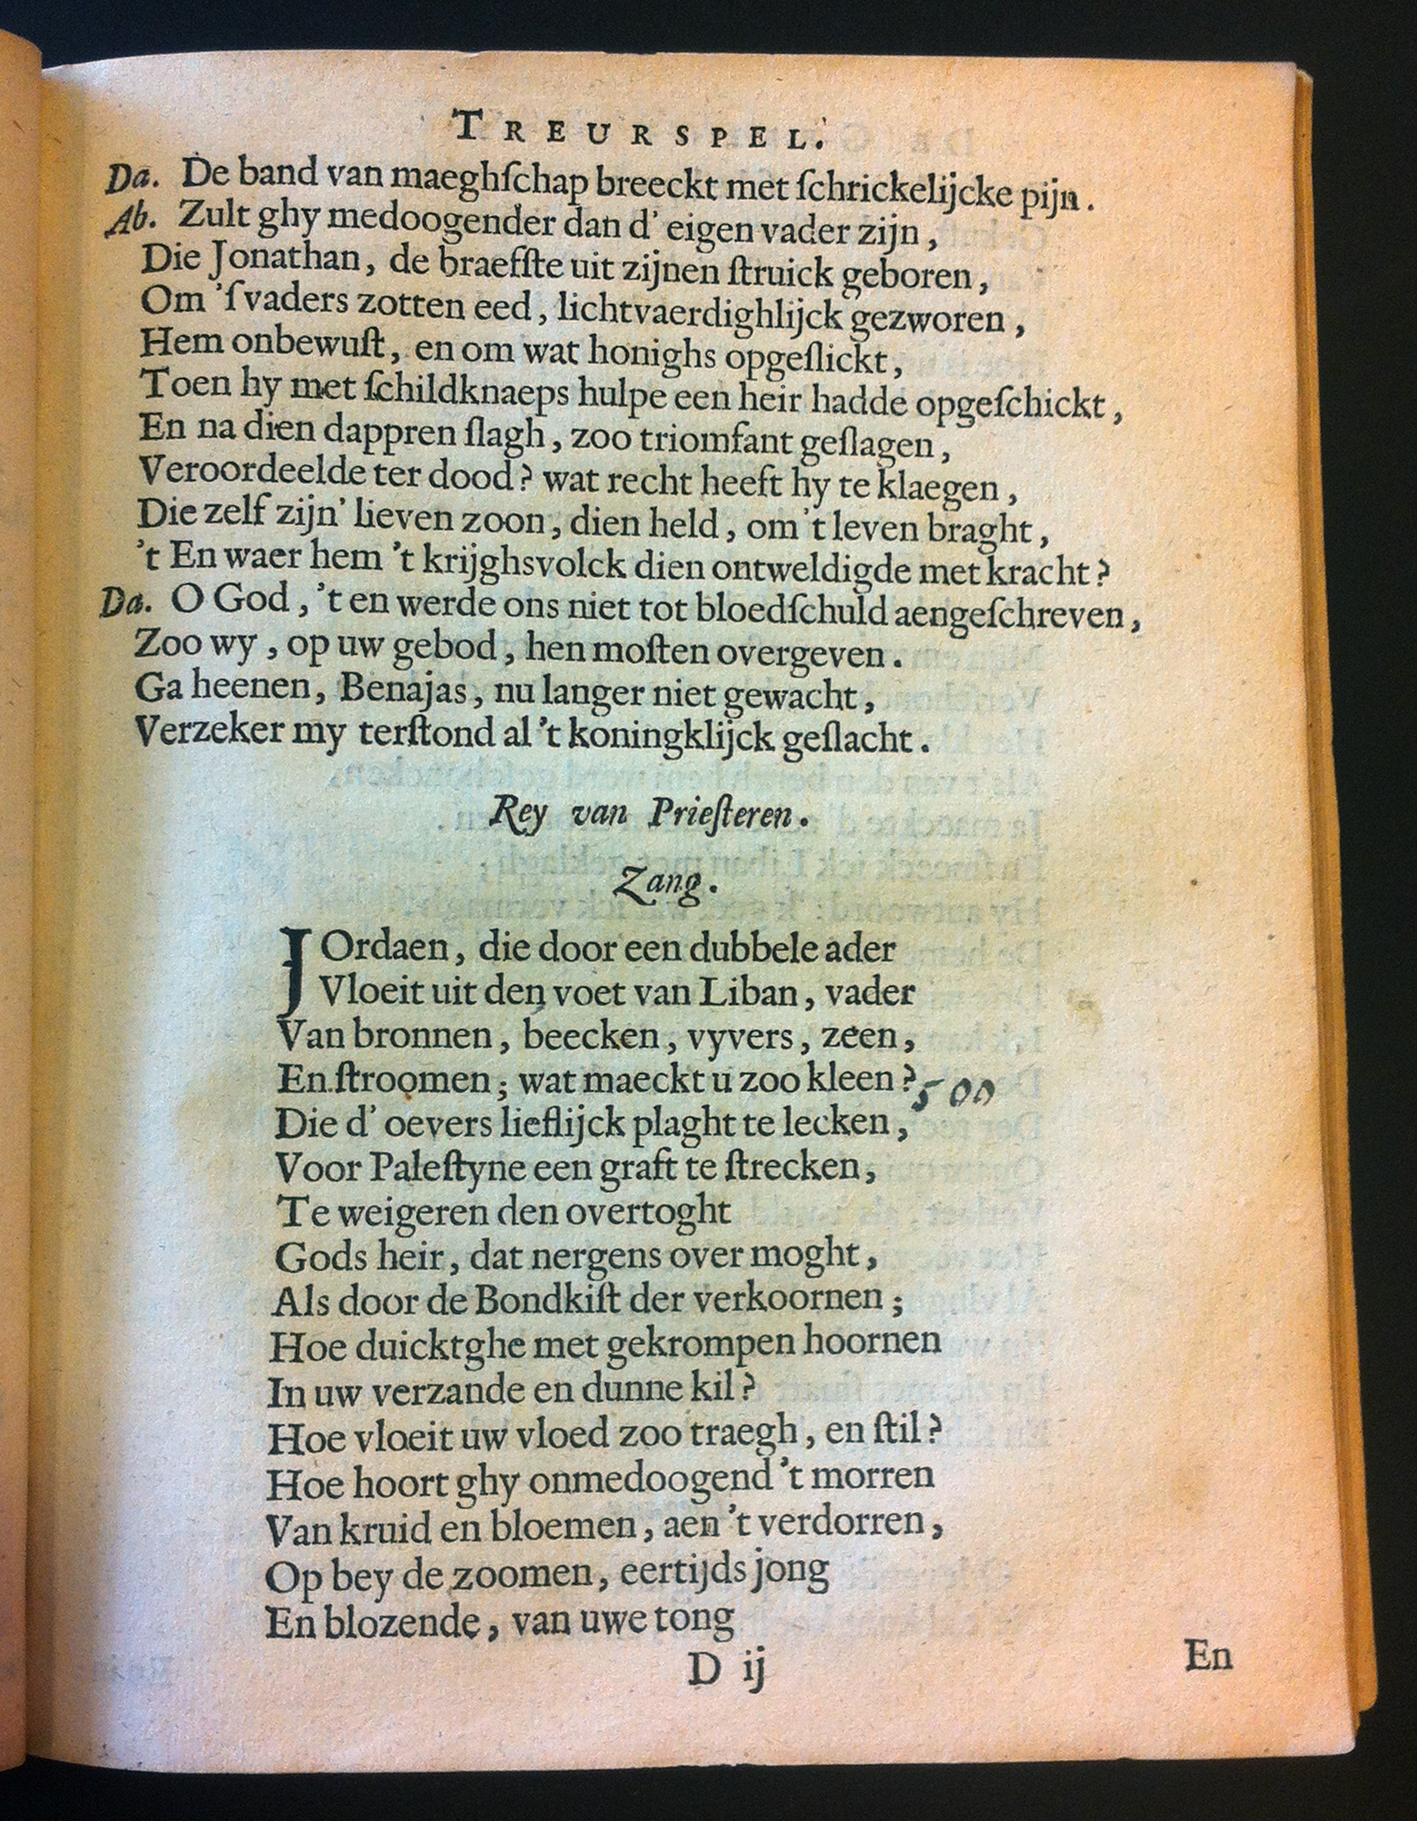 TREURSPEL.
Da. De band van maeghſchap breeckt met ſchrickelijcke pijn.
Ab. Zult ghy medoogender dan d' eigen vader zijn,
Die Jonathan, de braefſte uit zijnen ſtruick geboren,
Om 'ſvaders zotten eed, lichtvaerdighlijck gezworen,
Hem onbewuſt, en om wat honighs opgeſlickt,
Toen hy met ſchildknaeps hulpe een heir hadde opgeſchickt,
En na dien dappren ſlagh, zoo triomfant geſlagen,
Veroordeelde ter dood? wat recht heeft hy te klaegen,
Die zelf zijn' lieven zoon, dien held, om 't leven braght,
't En waer hem 't krijghsvolck dien ontweldigde met kracht?
Da. O God, 't en werde ons niet tot bloedſchuld aengeſchreven,
Zoo wy, op uw gebod, hen moſten overgeven.
Ga heenen, Benajas, nu langer niet gewacht,
Verzeker my terſtond al 't koningklijck geſlacht.
Rey van Prieſteren.
Zang.
JOrdaen, die door een dubbele ader
Vloeit uit den voet van Liban, vader
Van bronnen, beecken, vyvers, zeen,
En ſtroomen; wat maeckt u zoo kleen? 500
Die d' oevers lieflijck plaght te lecken,
Voor Paleſtyne een graft te ſtrecken,
Te weigeren den overtoght
Gods heir, dat nergens over moght,
Als door de Bondkiſt der verkoornen;
Hoe duicktghe met gekrompen hoornen
In uw verzande en dunne kil?
Hoe vloeit uw vloed zoo traegh, en ſtil?
Hoe hoort ghy onmedoogend 't morren
Van kruid en bloemen, aen 't verdorren,
Op bey de zoomen, eertijds jong
En blozende, van uwe tong
D ij En